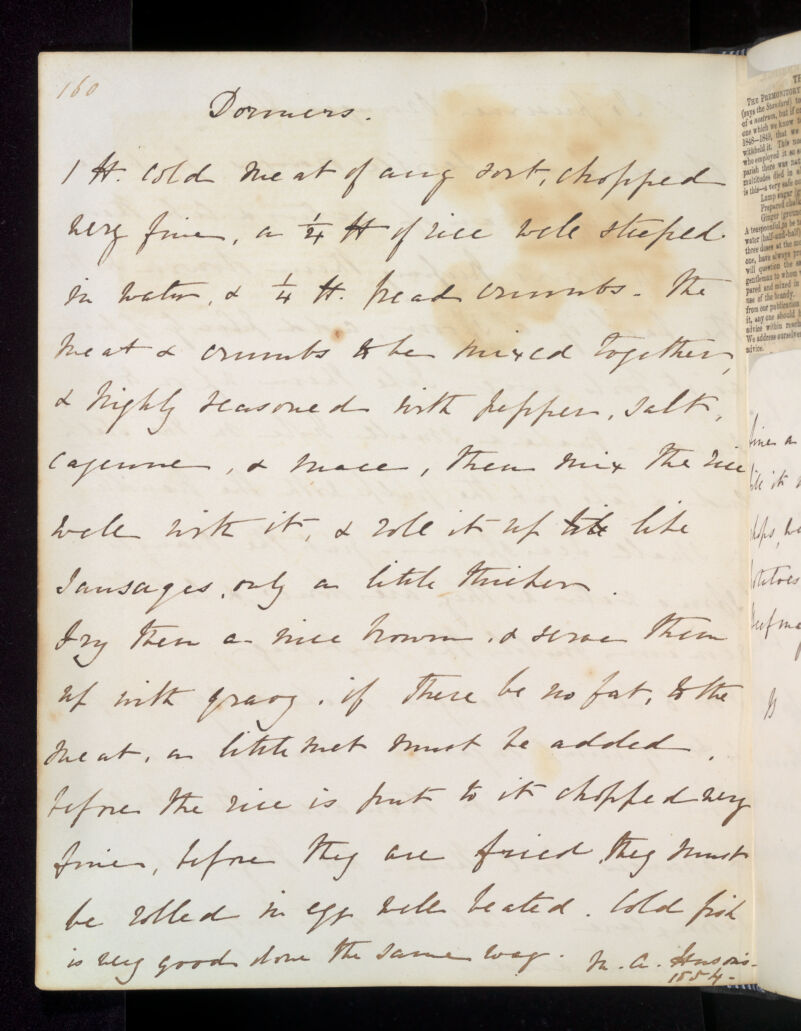 160
Dormers.
1 lb. cold meat of any sort, chopped
very fine, a 1/4 lb of rice well steeped
in water, & 1/4 lb. bread crumbs. The
meat & crumbs to be mixed together,
& highly seasoned with pepper, salt,
cayenne, & mace, then mix the rice
well with it, & roll it up like
Sausages, only a little thicker.
Fry them a nice brown, & serve them
up with gravy. if there be no fat, to the
meat, a little suet must be added,
before the rice is put to it chopped very
fine, before they are fried, they must
be rolled in egg well beated. Cold fish
is very good done the same way. M. A.
1854.
THE PREMONITORY
(says the Standard)
of a nostrum, but if
one which we know
1848-1849, that we
withheld it. This
who employed it so
parish there was
multitudes died in
is this—a very safe
Lump sugar
Prepared
Ginger
A teaspoonful, to be
water (half-and-half)
three doses at the
one, have always
will question the
gentleman to whom
pared and mixed in
use of the brandy.
from our publication
it, any one should
advice within
We address ourselves
advice.
fine a
it
chops,
potatoes